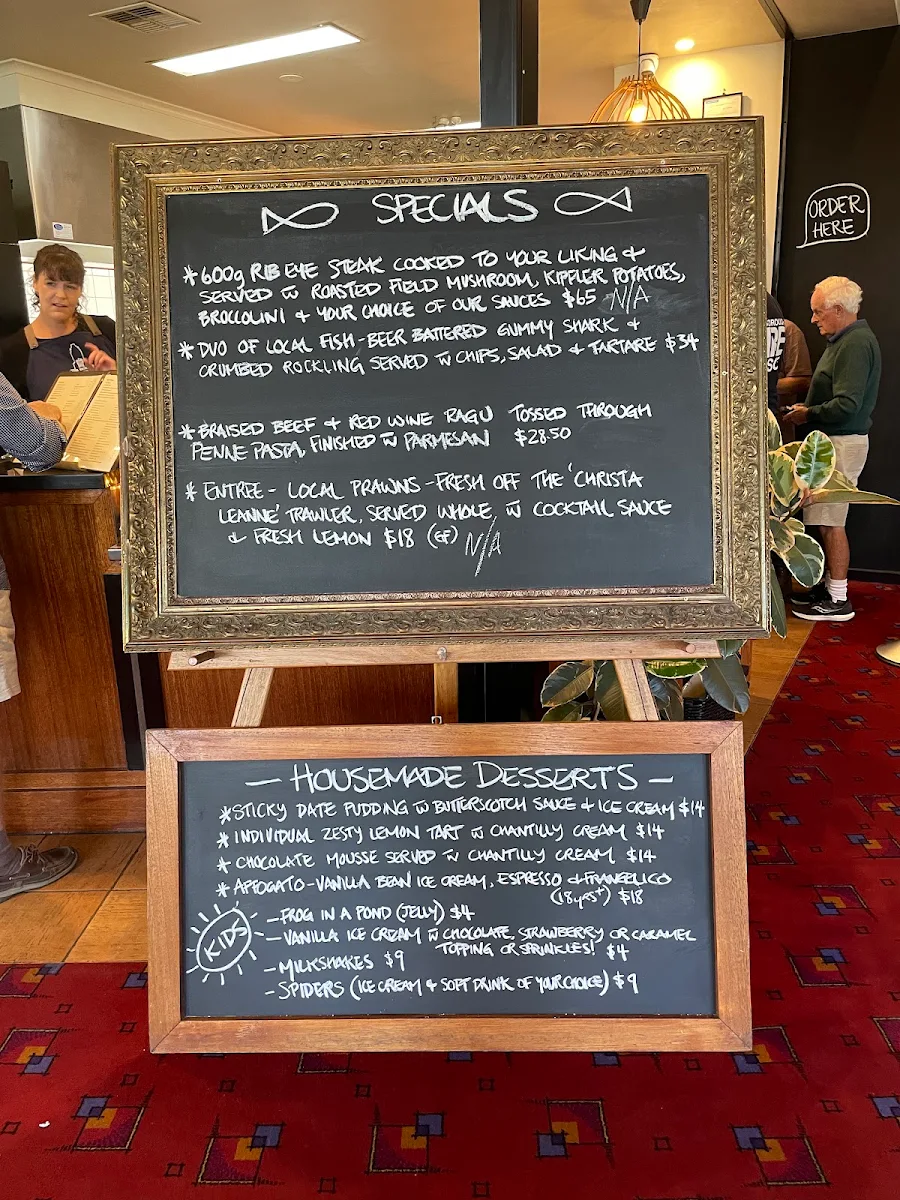 SPECIALS
* 600g RIB EYE STEAK COOKED TO YOUR LIKING &
SERVED W ROASTED FIELD MUSHROOM, KIPFLER POTATOES,
BROCCOLINI & YOUR CHOICE OF OUR SAUCES $65 N/A
* DUO OF LOCAL FISH - BEER BATTERED GUMMY SHARK &
CRUMBED ROCKLING SERVED W CHIPS, SALAD & TARTARE $34
* BRAISED BEEF & RED WINE RAGU TOSSED THROUGH
PENNE PASTA, FINISHED W PARMESAN $28.50
* ENTREE - LOCAL PRAWNS - FRESH OFF THE 'CHRISTA
LEANNE' TRAWLER, SERVED WHOLE, W COCKTAIL SAUCE
& FRESH LEMON $18 (GF) N/A
ORDER
HERE
- HOUSEMADE DESSERTS -
* STICKY DATE PUDDING W BUTTERSCOTCH SAUCE & ICE CREAM $14
* INDIVIDUAL ZESTY LEMON TART W CHANTILLY CREAM $14
* CHOCOLATE MOUSSE SERVED W CHANTILLY CREAM $14
* AFFOGATO - VANILLA BEAN ICE CREAM, ESPRESSO & FRANGELICO
(18yrs+) $18
KIDS
- FROG IN A POND (JELLY) $4
- VANILLA ICE CREAM W CHOCOLATE, STRAWBERRY OR CARAMEL
TOPPING OR SPRINKLES! $4
- MILKSHAKES $9
- SPIDERS (ICE CREAM & SOFT DRINK OF YOUR CHOICE) $9